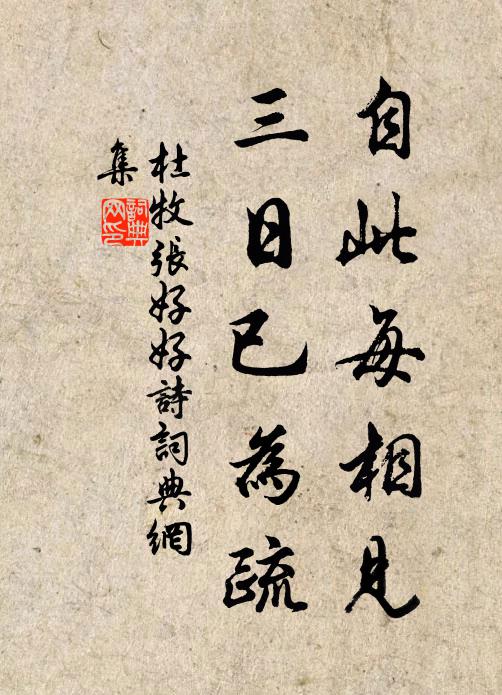 自此每相見
三日已為疏
杜牧張好好詩詞典網
集
詞典
网印